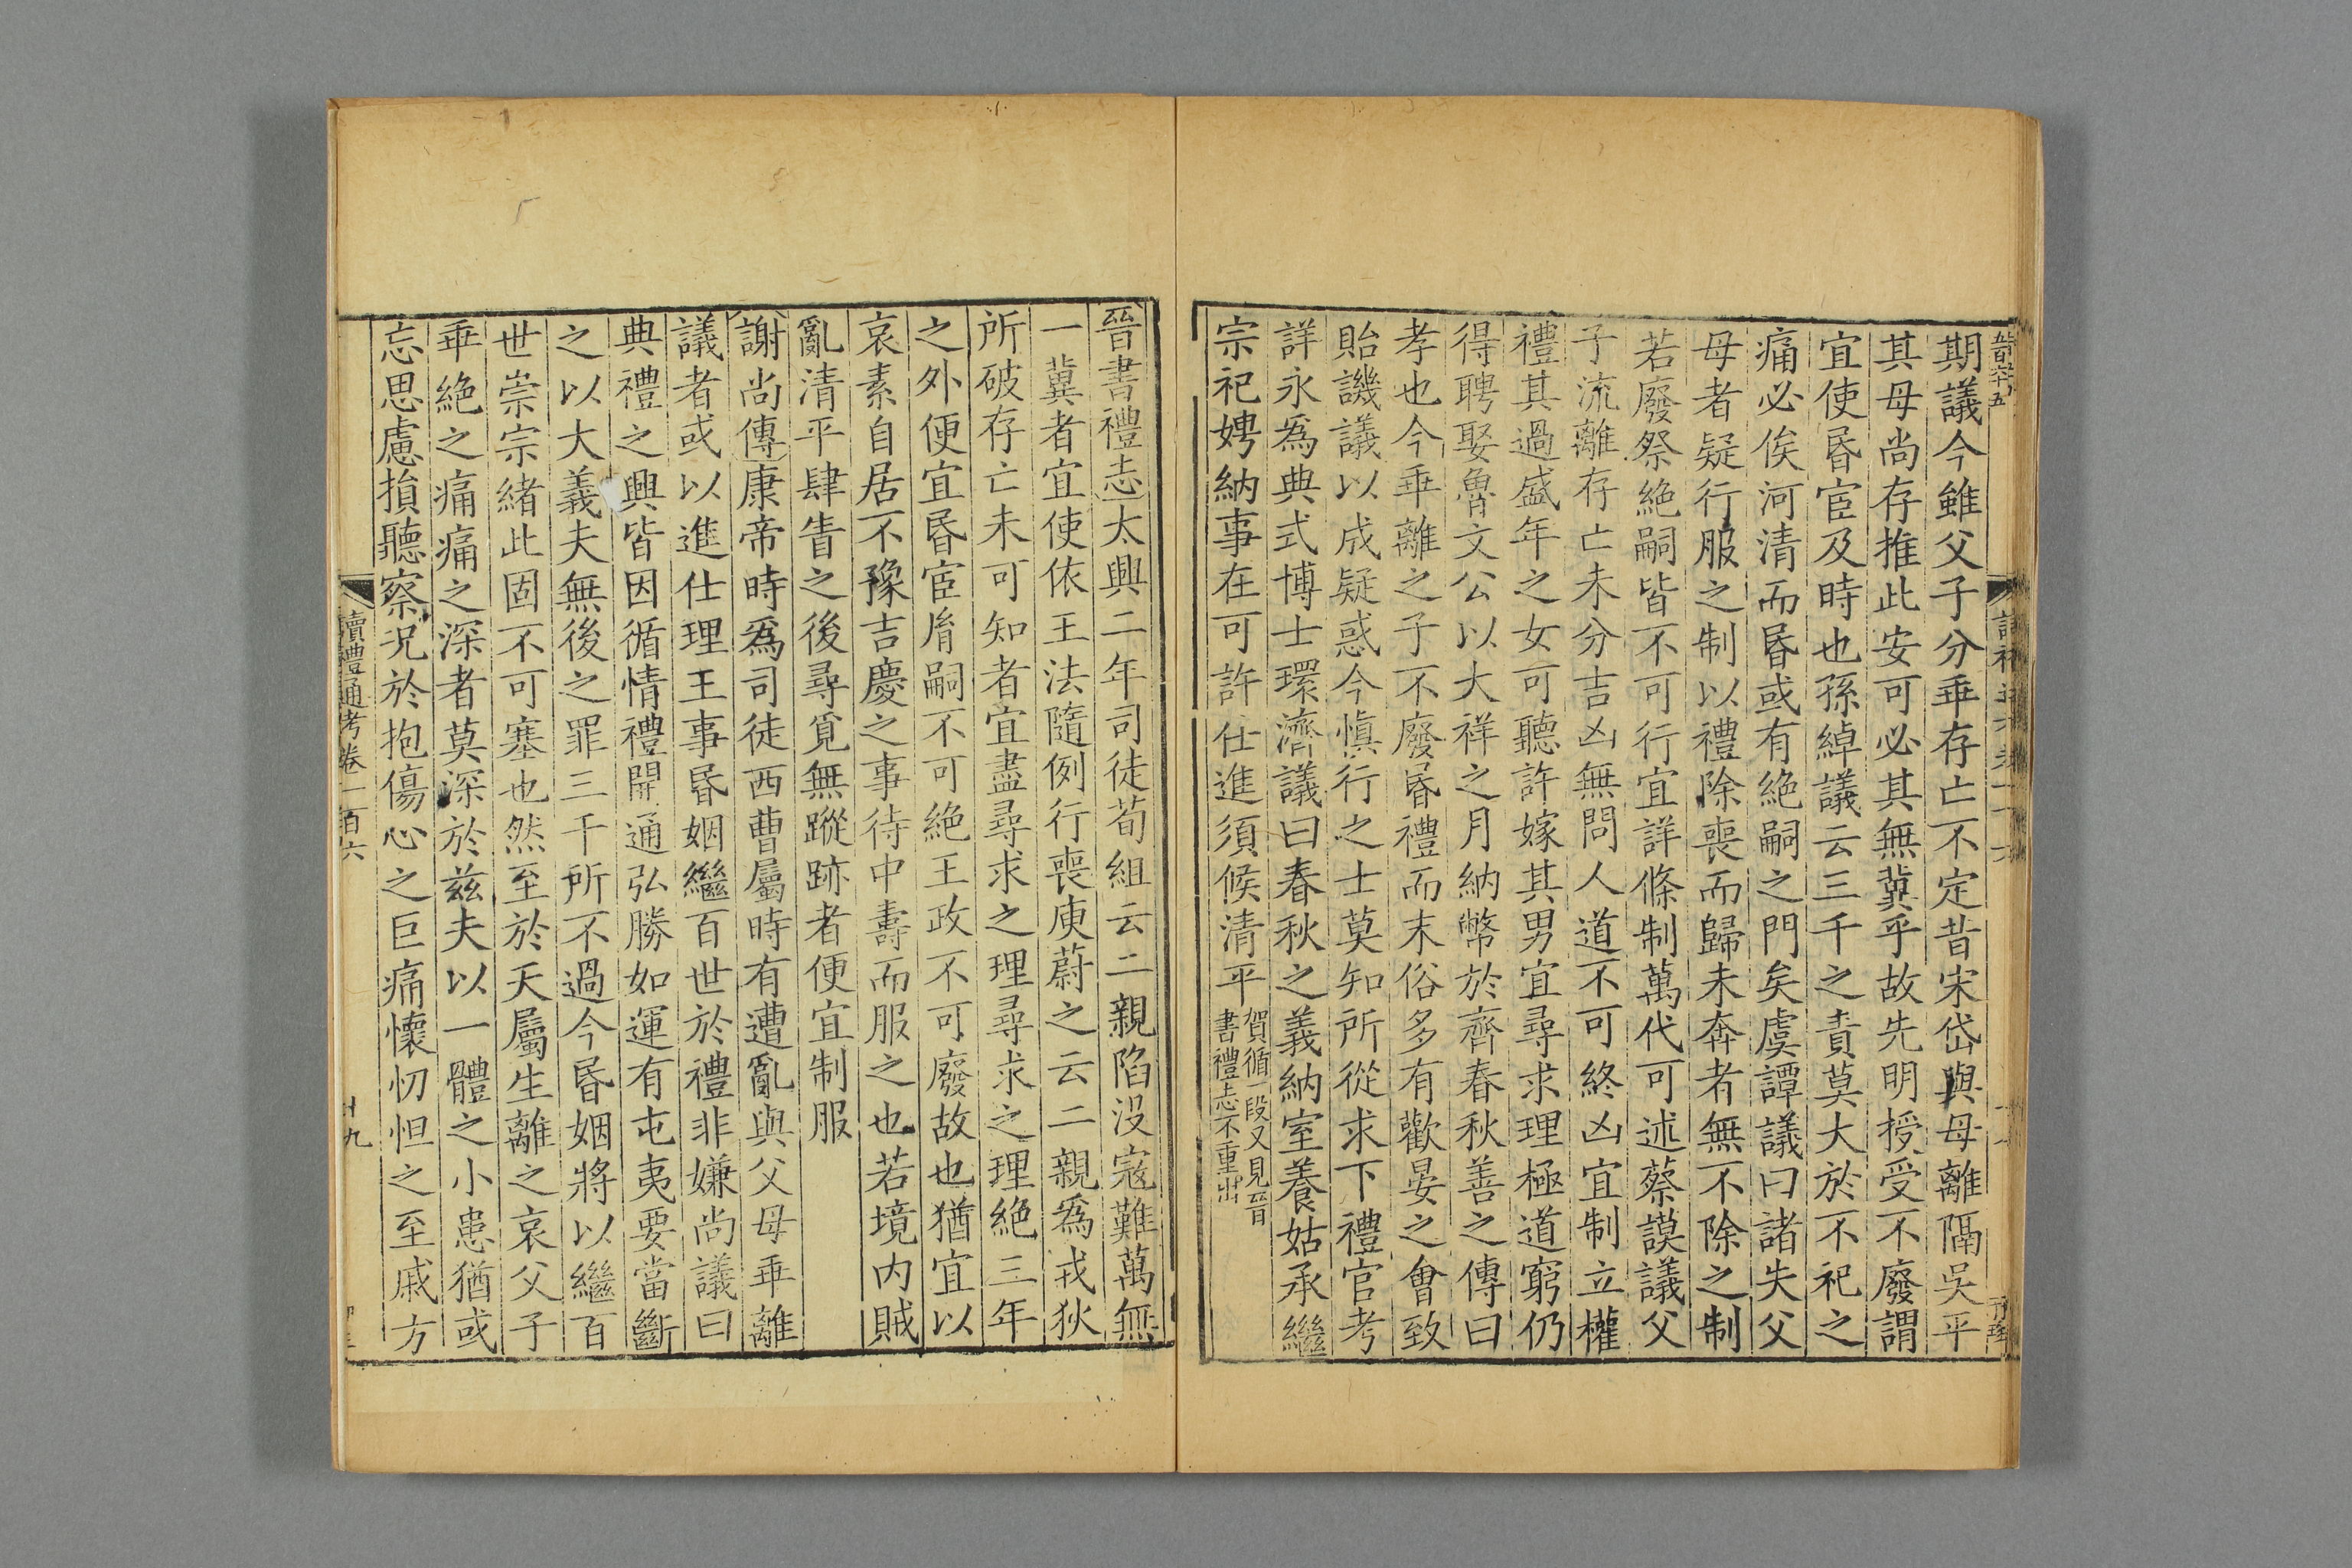 期議今雖父子分乖存亡不定昔宋岱與母離隔吳平
其母尚存推此安可必其無冀乎故先明授受不廢謂
宜使昬宦及時也孫綽議云三千之責莫大於不祀之
痛必俟河清而昬或有絶嗣之門矣虞譚議曰諸失父
母者疑行服之制以禮除喪而歸未奔者無不除之制
若廢祭絶嗣皆不可行宜詳條制萬代可述蔡謨議父
子流離存亡未分吉凶無問人道不可終凶宜制立權
禮其過盛年之女可聽許嫁其男宜尋求理極道窮仍
得聘娶魯文公以大祥之月納幣於齊春秋善之傳曰
孝也今乖離之子不廢昬禮而末俗多有歡宴之會致
貽譏議以成疑惑今愼行之士莫知所從求下禮官考
詳永爲典式博士環濟議曰春秋之義納室養姑承繼
宗祀娉納事在可許仕進須候清平賀循一段又見晉
書禮志不重出
晉書禮志太興二年司徒荀組云二親陷没寇難萬無
一冀者宜使依王法隨例行喪庾蔚之云二親爲戎狄
所破存亡未可知者宜盡尋求之理尋求之理絶三年
之外便宜昬宦胤嗣不可絶王政不可廢故也猶宜以
哀素自居不豫吉慶之事待中壽而服之也若境内賊
亂清平肆眚之後尋覓無蹤跡者便宜制服
謝尚傳康帝時爲司徒西曹屬時有遭亂與父母乖離
議者或以進仕理王事昬姻繼百世於禮非嫌尚議曰
典禮之興皆因循情禮開通弘勝如運有屯夷要當斷
之以大義夫無後之罪三千所不過今昬姻將以繼百
世崇宗緒此固不可塞也然至於天屬生離之哀父子
乖絶之痛痛之深者莫深於兹夫以一體之小患猶或
忘思慮損聽察況於抱傷心之巨痛懷忉怛之至戚方
讀禮通考卷一百六
十九